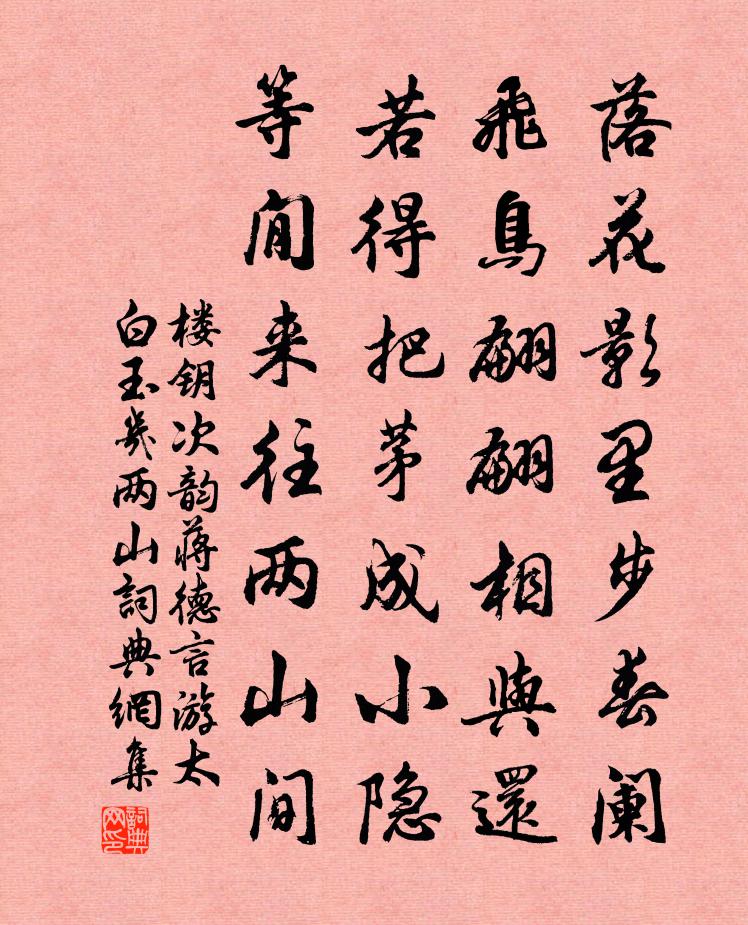 落花影里步春阑
飛鳥翩翩相與還
若得把茅成小隐
等閒来往两山间
楼钥次韵蒋德言游太
白玉几两山詞典網集
詞典网印